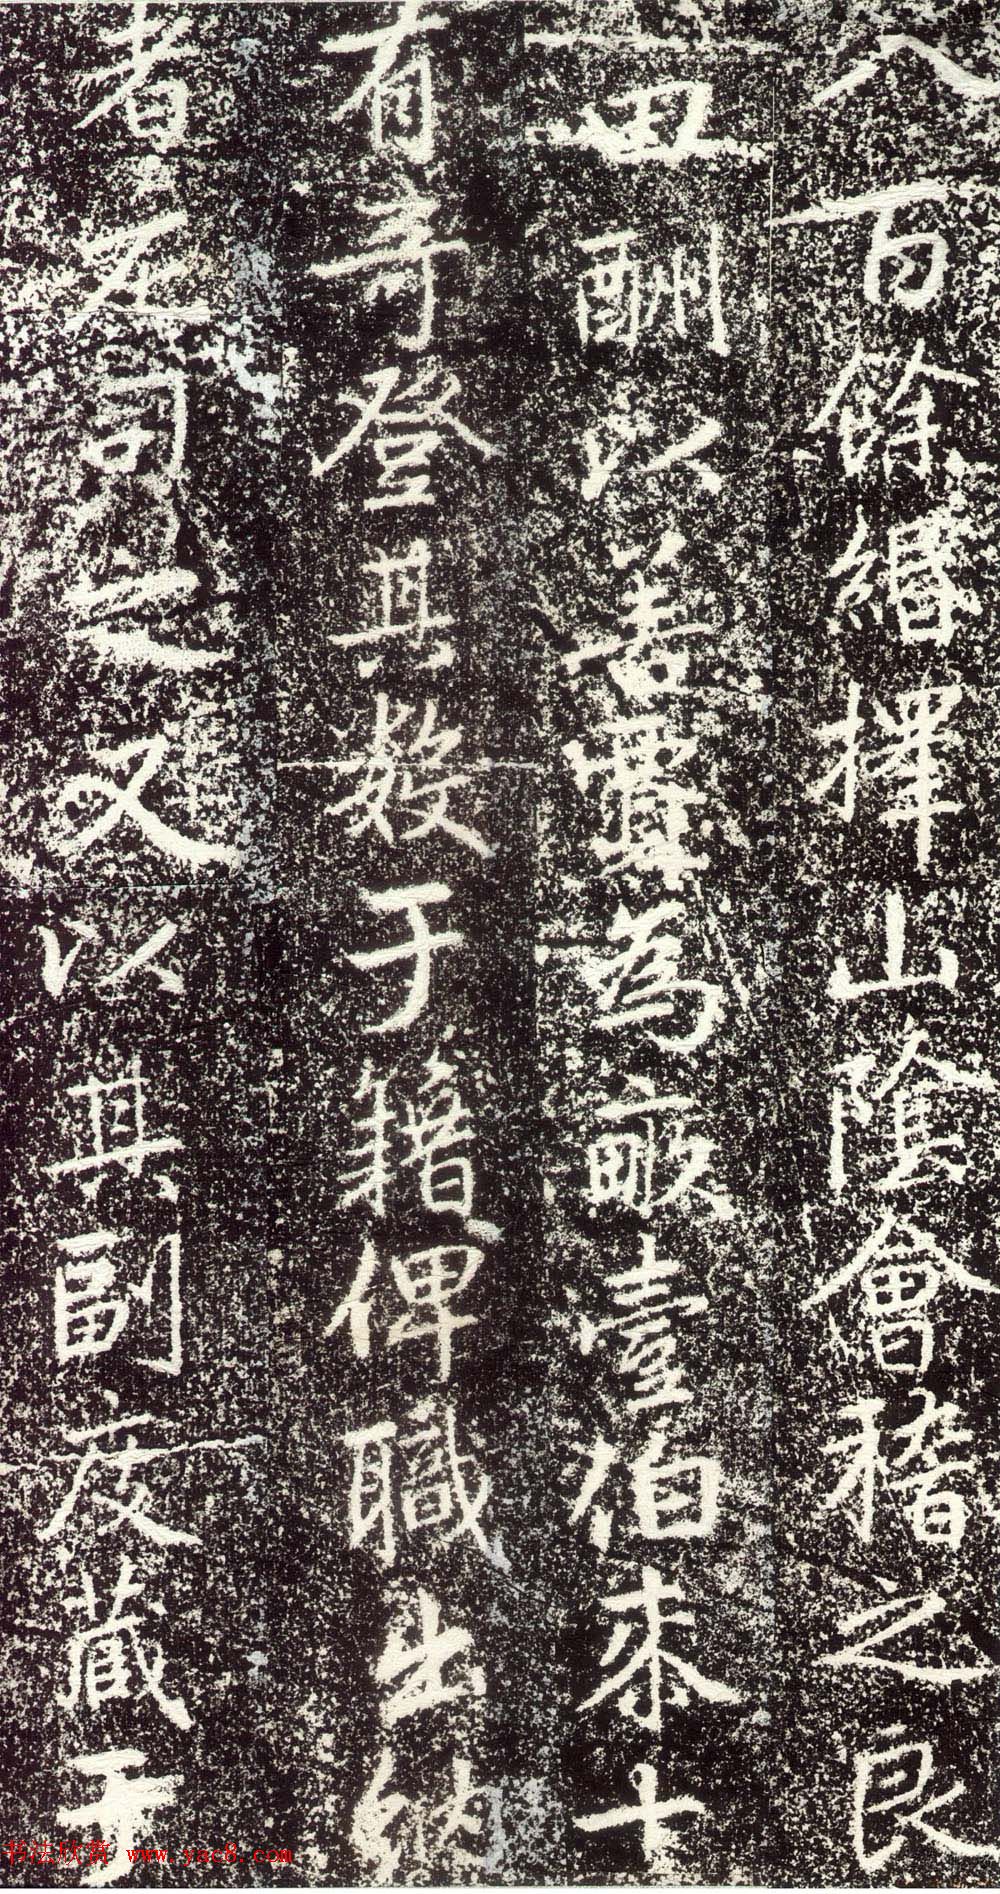 八百餘緡擇山陰會稽之良
田酬以善賈為畝壹伯柒十
有奇登其數于籍俾職出納
者互司之又以其副庋藏于
书法欣赏 www.yac8.com